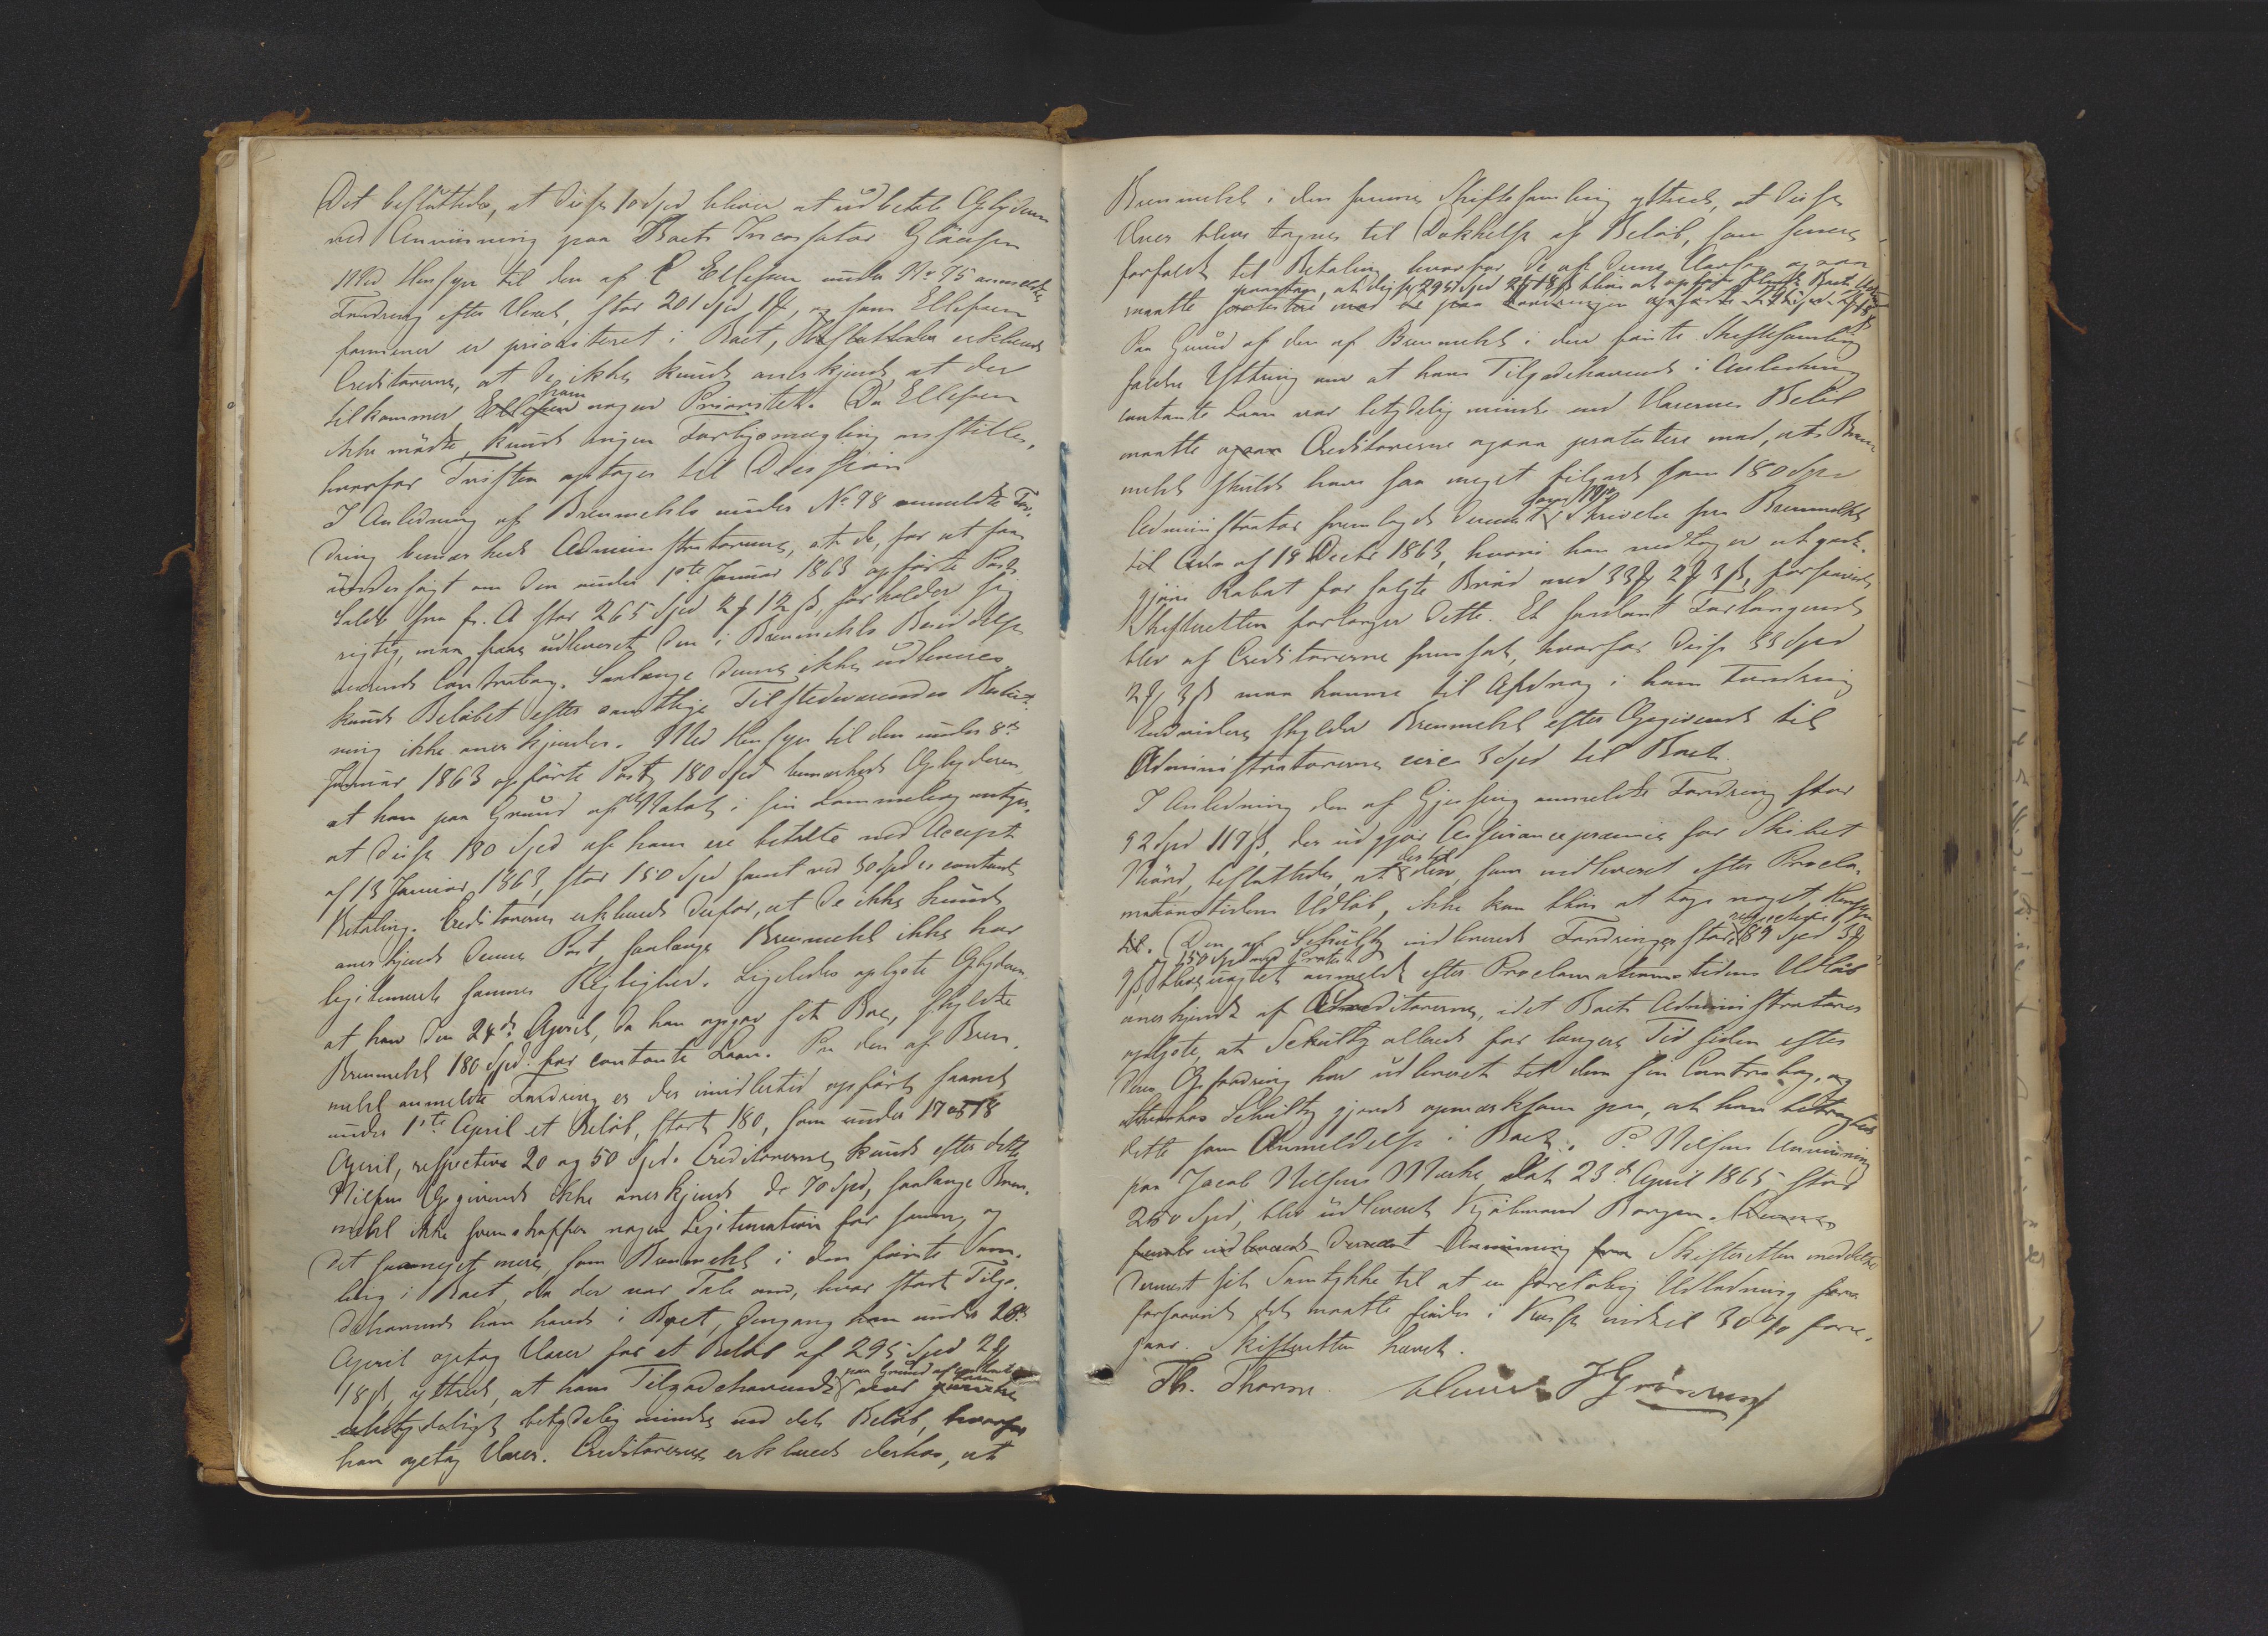 Det besluttedes, at disse 10 Spd bliver at udbetale Opbyderen
ved Anviisning paa Boets Incassator Glaasen
Med Hensyn til den af E Ellefsen under No 75 anmeldte
Fordring efter Vexel, stor 201 Spd 1 ₰, og som Ellefsen
formener er prioriteret i Boet, erklærede
Creditorerne, at de ikke kunde anerkjende, at der
tilkommer ham nogen Prioritet. Da Ellefsen
ikke mødte, kunde ingen Forligsmægling anstilles,
hvorfor Tvisten optages til Decision
I Anledning af Brummehls under No 78 anmeldte For-
dring bemærkede Administratorerne, at de, for at faa
undersøgt om den under 1ste Januar 1863 opførte Post
Saldo fra fr. A stor 265 Spd 2 ₰ 12 ß, forholder sig
rigtig, maa faae udleveret den i Brummehls Besiddelse
værende Contrabog. Saalænge denne ikke udleveres
kunde Beløbet efter samtlige Tilstedeværendes Paastand
ikke anerkjendes. Med Hensyn til den under 8de
Januar 1863 opførte Post, 180 Spd bemærkede Opbyderen,
at han paa Grund af et Notat i sin Lommebog antager,
at disse 180 Spd af ham ere betalte med Accept
af 13 Januar 1863, stor 150 Spd samt med 30 Spd i contant
Betaling. Creditorerne erklærede derfor, at de ikke kunde
anerkjende denne Post, saalænge Brummehl ikke har
legitimeret sammes Rigtighed. Ligeledes oplyste Opbyderen
at han den 24de April, da han opgav sit Boe, skyldte
Brummehl 180 Spd. for contante Laan. Paa den af Brum-
mehl anmeldte Fordring er der imidlertid opført saavel
under 1ste April et Beløb, stort 180, som under 17 og 18
April, respective 20 og 50 Spd. Creditorerne kunde efter dette
Nilsens Opgivende ikke anerkjende de 70 Spd, saalænge Brum-
mehl ikke fremskaffer nogen Legitimation for samme, og
det saameget mere, som Brummehl i den første Sam-
ling i Boet, da der var Tale om, hvor stort Tilgo-
dehavende han havde i Boet, dengang han under 20de
April optog Varer for et Beløb af 295 Spd 2 ₰
18 ß, yttrede, at hans Tilgodehavende paa Grund af contante Laan var
betydelig mindre end det Beløb, hvorfor
han optog Varer. Creditorerne erklærede derhos, at
Brummehl i den samme Skiftesamling yttrede, at disse
Varer bleve tagne til Dækkelse af Beløb, som senere
forfaldt til Betaling hvorfor de af denne Aarsag ogsaa
paastaa, at disse 295 Spd 2 ₰ 18 ß bliver at opføre blandt Boets
maatte protestere mod
Paa Grund af den af Brummehl i den første Skiftesamling
faldne Yttring om at hans Tilgodehavende i Anledning
contante Laan var betydelig mindre end Varernes Beløb
maatte Creditorerne ogsaa protestere mod, at Brum-
mehl skulde have saa meget tilgode som 180 Spd
Administrator fremlagde dernæst Skrivelse fra Brummehl
til dem af 18 Decbr 1863, hvori han vedtager at godt-
gjøre Rabat for solgte Brød med 33 Spd 2 ₰ 3 ß, forsaavidt
Skifteretten forlanger dette. Et saadant Forlangende
blev af Creditorerne fremsat, hvorfor disse 33 Spd
2 ₰, 3 ß maa komme til Afdrag i hans Fordring
Endvidere skylder Brummehl efter Opgivende til
Administratorerne circa 3 Spd til Boet.
I Anledning den af Gjessing anmeldte Fordring stor
92 Spd 119 ß, der udgjør Assurancepræmie for Skibet
Njord, besluttedes, at der til den, som indleveret efter Procla-
mationstidens Udløb, ikke kan blive at tage noget Hensyn
til. Den af Schultz indleverede Fordringer, stor respective 189 Spd 3 ₰
9 ß, 150 Spd med Protest blev, uagtet anmeldt efter Proclamationstidens Udløb
anerkjendt af Creditorerne, idet Boets Administratorer
oplyste, at Schultz allerede for længere Tid siden efter
deres Opfordring har udleveret til dem sin Contrabog, og
derhos Schultz gjorde opmærksom paa, at han betragtede
dette som Anmeldelse i Boet. P. Nilsens Anviisning
paa Jacob Nilsens Merke, dat 23de April 1865, stor
250 Spd, blev udleveret Kjøbmand Borgen.
Skifteretten meddelte
dernæst sit Samtykke til at en foreløbig Udlodning
forsaavidt det maatte findes i Kasse indtil 30 % fore-
gaar. Skifteretten hævet.
Th. Thorne. JGrønlund